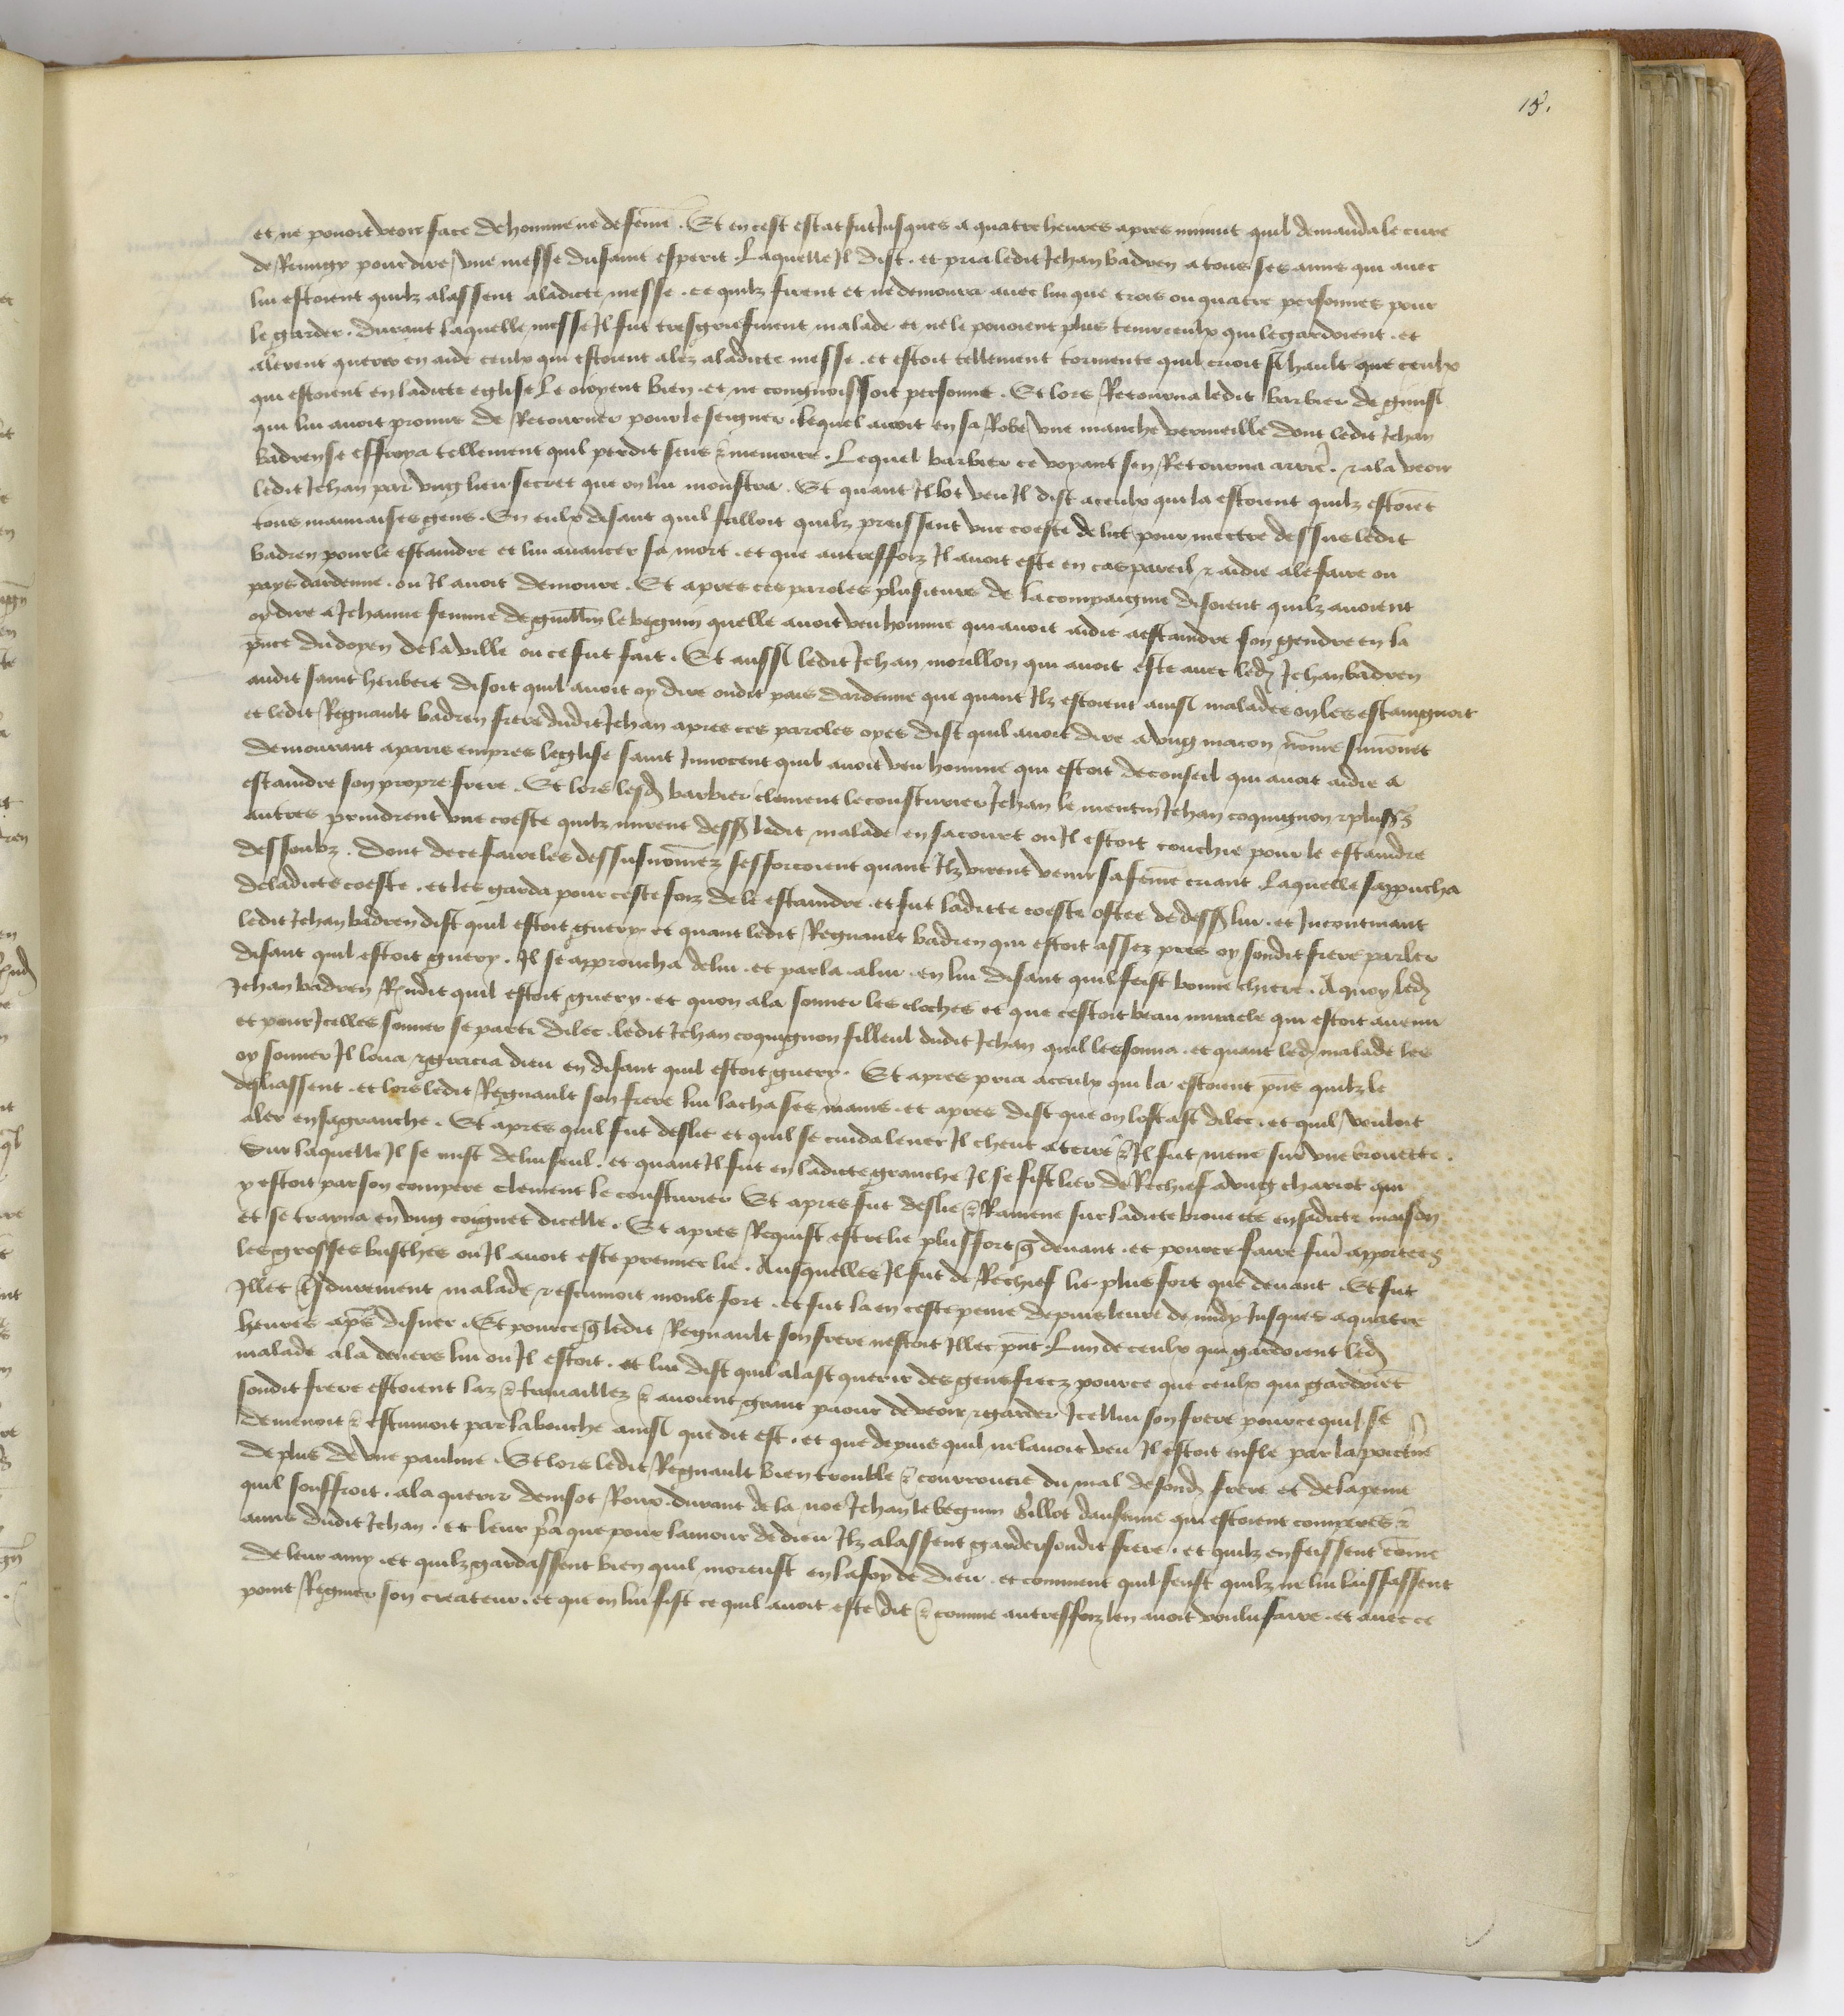 18.
et ne pouoit veoir face de homme ne de feme . Et en cest estat fut Jusques a quatre heures apres minuit quil demanda le cure
de Rungy pour dire vne messe du saint esperit . Laquelle Il dist . et pria ledit Jehan badren a tous ses amis qui auec
lui estoient quilz alassent a ladicte messe . ce quilz firent et ne demoura auec lui que trois ou quatre personnes pour
le garder . durant laquelle messe Il fut tresgriefment malade et ne le pouoient plus tenir ceulx qui le gardoient . et
alerent querir en aide ceulx qui estoient alez a ladicte messe . et estoit tellement tormente quil crioit si hault que ceulx
qui estoient en ladicte eglise le oioyent bien . et ne congnoissoit personne . Et lors Retourna ledit barbier de
qui lui auoit promis de Retourner pour le seigner . lequel auoit en sa Robe vne manche vermeille dont ledit Jehan
badren se effroya tellement quil perdit sens & memoire . Lequel barbier ce voyant sen Retourna arrie . & ala veoir
ledit Jehan par vng lieu secret que on lui monstra . Et quant Il lot veu Il dist a ceulx qui la estoient quilz estoiet
tous mauuaises gens . En eulx disant quil falloit quilz preissent vne coeste de lict pour mectre dessus ledit
badren pour le estaindre et lui auancer sa mort . et que autresfoiz Il auoit este en cas pareil & aidie a le faire ou
pays dardenne . ou Il auoit demoure . Et apres ces paroles plusieurs de la compaignie disoient quilz auoient
oy dire a Jehanne femme de guillin le beguin quelle auoit veu homme qui auoit aidie a estaindre son gendre en la
pnce du doyen de la ville ou ce fut fait . Et aussi ledit Jehan morillon qui auoit este auec led Jehan badren
audit saint hubert disoit quil auoit oy dire oudit pais dardenne que quant Ilz estoient ainsi malades on les estaingnoit
et ledit Regnault badren frere dudit Jehan apres ces paroles oyes dist quil auoit dire a vng macon nome simonet
demourant a paris empres leglise saint Innocent quil auoit veu homme qui estoit de conseil qui auoit aidie a
estaindre son propre frere . Et lors lesd barbier clement le cousturier Jehan le mentin Jehan coquignon & pluss
autres prindrent vne coeste quilz mirent dess ledit malade en sa court ou Il estoit couchie pour le estaindre
dessoubz . Dont de ce faire les dessusnomez sefforcoient quant Ilz virent venir sa feme criant . Laquelle sapprucha
de ladicte coeste . et les garda pour ceste foiz de le estaindre . et fut ladicte coeste ostee de dess lui . et Incontinant
ledit Jehan badren dist quil estoit guery . et quant ledit Regnault badren qui estoit assez pres oy sondit frere parler
disant quil estoit guery . Il se approucha de lui . et parla a lui . en lui disant quil feist bonne chiere . A quoy led
Jehan badren Rndit quil estoit guery . et quon ala sonner les cloches et que cestoit beau miracle qui estoit auenu
et pour Jcelles sonner se parti dilec . ledit Jehan coquignon filleul dudit Jehan quil les sonna . et quant led malade les
oy sonner Il loua & gracia dieu en disant quil estoit guery . Et apres pria a ceulx qui la estoient pns quilz le
desliassent . et lors ledit Regnault son frere lui lacha ses mains . et apres dist que on lostast dilec . et quil vouloit
aler en sa granche . Et apres quil fut deslie et quil se cuida leuer Il cheut a terre & Il fut mene sur vne brouette .
Sur laquelle Il se mist de lui seul . et quant Il fut en ladicte granche Il se fist lier de Rechief a vng chariot qui
y estoit par son compere clement le cousturier Et apres fut deslie & Ramene sur ladicte brouette en sadicte maison
et se trayna en vng coignet dicelle . Et apres Requist estre lie plus fort q deuant . et pour ce faire fut apportees
les grosses busches ou Il auoit este premier lie . Ausquelles Il fut de Rechief lie plus fort que deuant . Et fut
Illec tsdurement malade & escumoit moult fort . et fut la en ceste peine depuis leure de midy Jusques a quatre
heures aps disner . Et pour ce q ledit Regnault son frere nestoit Illec pnt . Lun de ceulx qui gardoient led
malade ala deuers lui ou Il estoit . et lui dist quil alast querir des gens frecz pource que ceulx qui gardoiet
sondit frere estoient laz & trauaillez & auoient grant paour de veoir & garder Jcellui son frere pource quil se
demenoit & escumoit par la bouche ainsi que dit est . et que depuis quil ne lauoit veu Il estoit enfle par la poictrine
de plus de vne paulme . Et lors ledit Regnault bien trouble & courroucie du mal de sond frere et de la peine
quil souffroit . ala querir denisot Roux . durant de la noe Jehan le beguin Gillot dausenne qui estoient comperes &
amis dudit Jehan . et leur pa que pour lamour de dieu Ilz alassent garder sondit frere . et quilz en feissent come
de leur amy . et quilz gardassent bien quil moreust en la foy de dieu . et comment quil feust quilz ne lui laissassent
point Regnier son createur . et que on lui fist ce quil auoit este dit & comme autresfoiz len auoit voulu faire . et auec ce